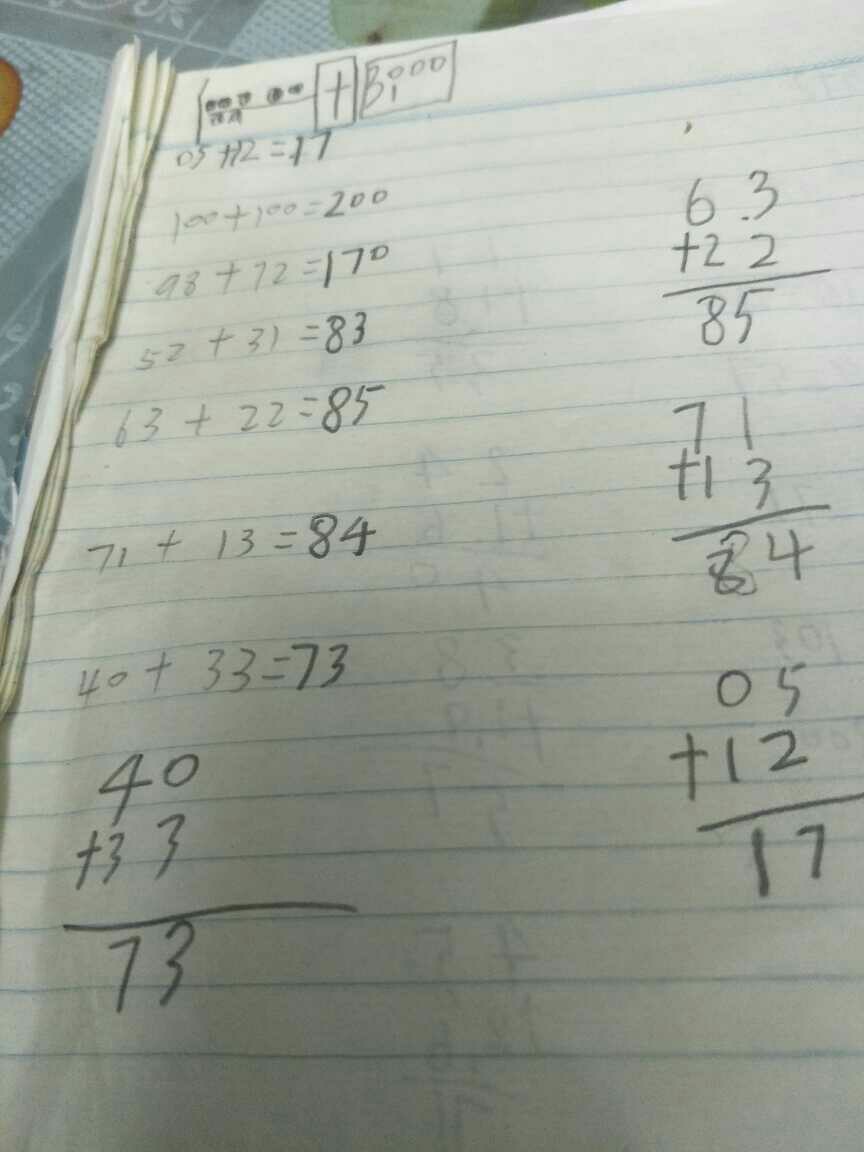 05 + 12 = 17
100 + 100 = 200
98 + 72 = 170
52 + 31 = 83
63 + 22 = 85
71 + 13 = 84
40 + 33 = 73
40
+33
73
63
+22
85
71
+13
84
05
+12
17